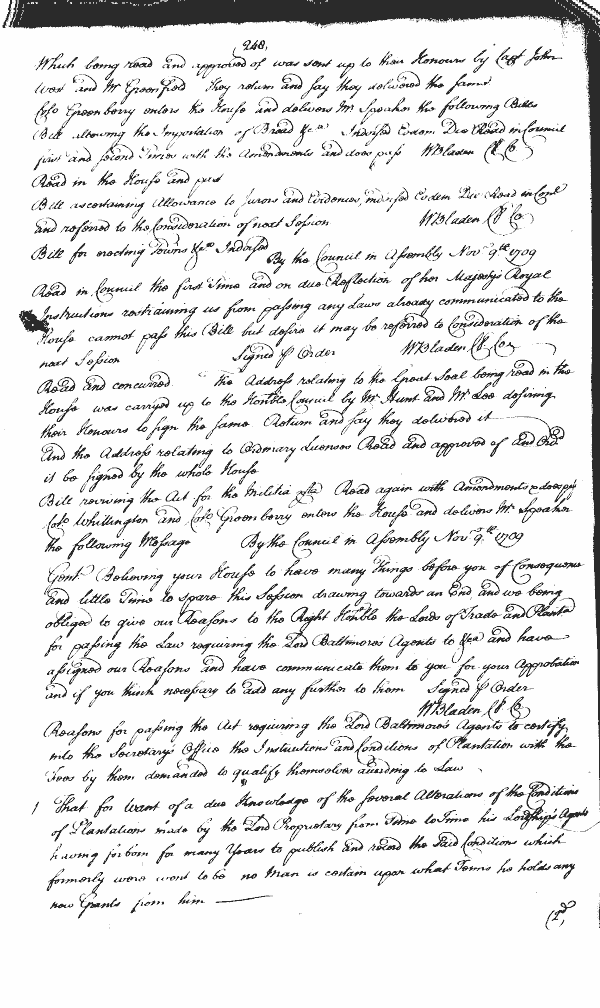 248,
Which being read and approved of was sent up to their Honours by Capt John
West and Mr Greenfield They return and say they delivered the same
Colo Greenberry enters the House and delivers Mr Speaker the following Bills
Bill allowing the Importation of Bread &ca Indorsed Eodem Die Read in Council
first and second Times with the Amendments and does pass WBladen Cl Co
Read in the House and past
Bill ascertaining Allowance to Jurors and Evidences, indorsed Eodem Die Read in Conl
and referred to the Consideration of next Session WBladen Cl Co
Bill for erecting Towns &ca Indorsed
By the Council in Assembly Novr 9th 1709
Read in Council the first Time and on due Reflection of her Majestys Royal
Instructions restraining us from passing any Laws already communicated to the
House cannot pass this Bill but desire it may be referred to Consideration of the
next Session Signed p Order WBladen Cl Co
Read and concurred the Address relating to the Great Seal being read in the
House was carryed up to the Honble Council by Mr Hunt and Mr Lee desiring
their Honours to sign the same Return and say they delivered it
And the Address relating to Ordinary Licenses Read and approved of and Ord
it be signed by the whole House
Bill reviving the Act for the Militia &ca Read again with Amendments & does pass
Colo Whittington and Colo Greenberry enters the House and delivers Mr Speaker
the following Message By the Council in Assembly Novr 9th 1709
Gent. Believing your House to have many Things before you of Consequence
and little Time to spare this Session drawing towards an End and we being
obliged to give our Reasons to the Right Honble the Lords of Trade and Planta
for passing the Law requiring the Lord Baltimore's Agents to &ca and have
assigned our Reasons and have communicate them to you for your Approbation
and if you think necessary to add any further to them Signed p Order
WBladen Cl Co
Reasons for passing the Act requiring the Lord Baltimore's Agents to certify
into the Secretary's Office the Instructions and Conditions of Plantation with the
Fees by them demanded to qualify themselves according to Law
1 That for Want of a due Knowledge of the several Alterations of the Conditions
of Plantations made by the Lord Proprietary from Time to Time his Lordship's Agents
having forborn for many Years to publish and record the said Conditions which
formerly were wont to be no Man is certain upon what Terms he holds any
new Grants from him
(2d